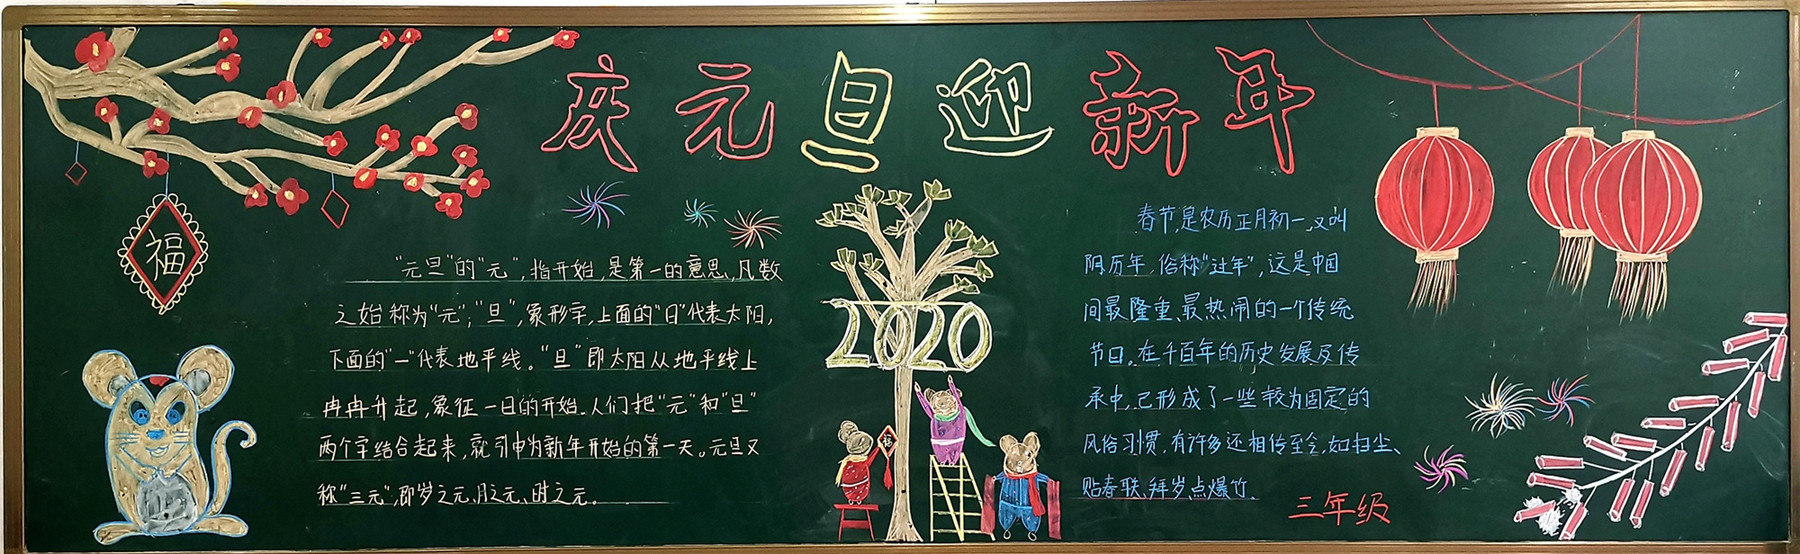 庆元旦迎新年
福
"元旦"的"元",指开始,是第一的意思,凡数
之始称为"元";"旦",象形字,上面的"日"代表太阳,
下面的"一"代表地平线。"旦"即太阳从地平线上
冉冉升起,象征一日的开始。人们把"元"和"旦"
两个字结合起来,就引申为新年开始的第一天。元旦又
称"三元",即岁之元、月之元、时之元。
2020
福
春节,是农历正月初一,又叫
阴历年,俗称"过年",这是中国
间最隆重、最热闹的一个传统
节日。在千百年的历史发展及传
承中,已形成了一些较为固定的
风俗习惯,有许多还相传至今,如扫尘、
贴春联、拜岁、点爆竹.
三年级